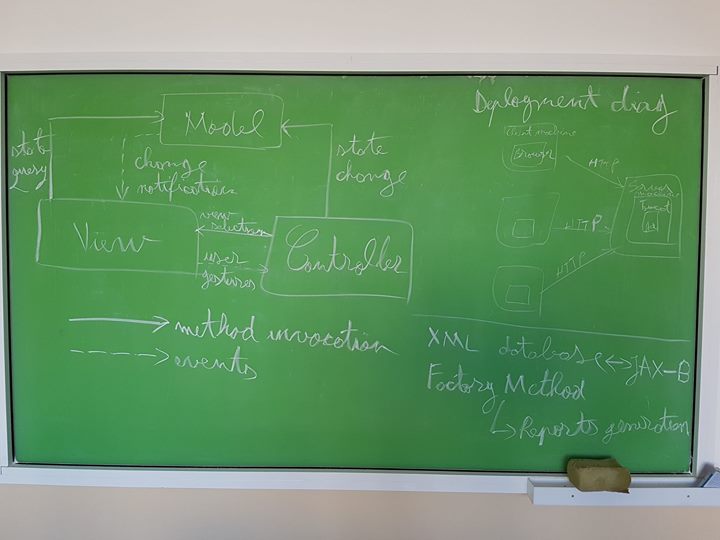 Model
state
query
change
notifications
state
change
View
view
selection
user
gestures
Controller
method invocation
events
Deployment diag
Client machine
Browser
HTTP
HTTP
HTTP
Server
machine
XML database <-> JAX-B
Factory Method
Reports generation